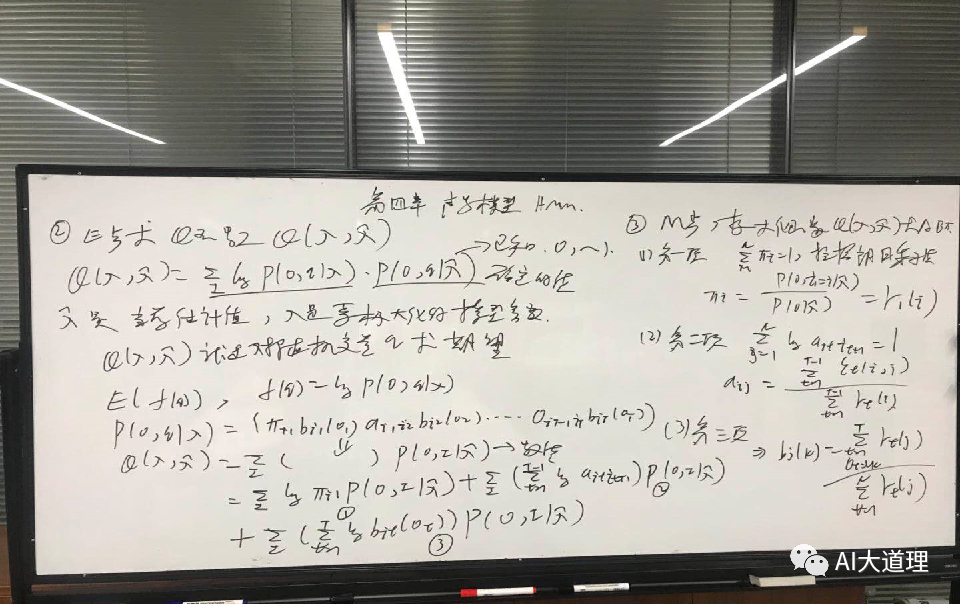 第四章 声学模型 Hmm.
② E步求 Q函数 Q(λ,λ̄)
Q(λ,λ̄) = ∑_I lg P(O,I|λ)·P(O,I|λ̄) → 已知 O,λ̄). 确定的值
λ̄是当前估计值, λ是要极大化的模型参数.
Q(λ,λ̄) 求期望
E(f(q)), f(q) = lg P(O,q|λ)
P(O,q|λ) = (πi1 bi1(o1) ai1,i2 bi2(o2)·····aiT-1,iT biT(oT))
Q(λ,λ̄) = ∑_I ( ① ) P(O,I|λ̄) → 数值
= ∑_I lg πi1 P(O,I|λ̄) + ∑_I (∑_{t=1}^{T-1} lg ait,it+1) P(O,I|λ̄)
① ②
+ ∑_I (∑_{t=1}^{T} lg bit(ot)) P(O,I|λ̄)
③
③ M步, Q(λ,λ̄)
(1) 第一项 ∑πi=1, 拉格朗日乘子法
πi = P(O,i1=i|λ̄) / P(O|λ̄) = r1(i)
(2) 第二项 ∑_{j=1}^{N} lg ait,it+1 = 1
aij = ∑_{t=1}^{T-1} ξt(i,j) / ∑_{t=1}^{T-1} rt(i)
(3) 第三项
⇒ bj(k) = ∑_{t=1, ot=vk}^{T} rt(j) / ∑_{t=1}^{T} rt(j)
AI大道理